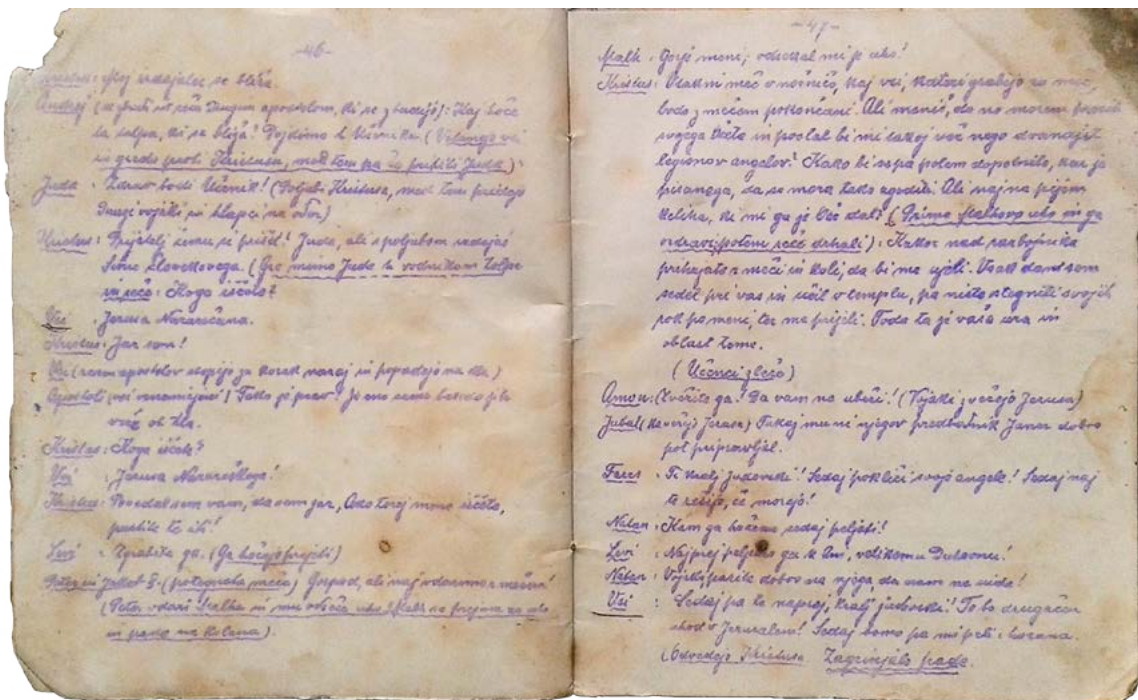 -46-
Kristus: Moj izdajalec se bliža.
Andrej (se zbudi in reče drugim apostolom, ki se zbudijo): Kaj hoče
ta tolpa, ki se bliža? Pojdimo k Učeniku (
in gredo proti Kristusu, med tem pa že prihiti Juda):
Juda : Zdrav bodi Učenik! (Poljub Kristusa, med tem pridejo
drugi vojaki in hlapci na oder)
Kristus: Prijatelj čemu si prišel? Juda, ali s poljubom izdajaš
Sinu človekovega. (Gre mimo Juda k vodnikom tolpe
in reče: Koga iščete?
Vsi : Jezusa Nazarečana.
Kristus: Jaz sem!
Vsi (razen apostolov stopijo za korak nazaj in popadejo na tla)
Apostoli (vsi ) Tako je prav! Je eno samo besedo jih
vrže ob tla.
Kristus: Koga iščete?
Vsi : Jezusa Nazareškega!
Kristus: Povedal sem vam, da sem jaz, Ako torej mene iščete,
pustite te iti!
Levi : Zgrabite ga. (Ga hočejo prijeti)
Peter in Jakob (potegneta meča) Gospod, ali naj udarimo z mečem?
(Peter udari Malha in mu odseče uho, Malh se prijema za uho
in pade na kolena).
-47-
Malh : Gorje meni, odsekal mi je uho!
Kristus: Vtakni meč v nožnico, kaj vsi, kateri grabijo za meč,
bodo z mečem pokončani. Ali meniš, da ne morem prositi
svojega Očeta in poslal bi mi takoj več nego dvanajst
legionov angelov? Kako bi se pa potem dopolnilo, kar je
pisanega, da se mora tako zgoditi. Ali naj ne pijem
keliha, ki mi ga je Oče dal? (Prime Malhovo uho in ga
ozdravi, potem reče drhali): Kakor nad razbojnika
prihajate z meči in koli, da bi me ujeli. Vsak dan sem
sedel pri vas in učil v templu, pa niste stegnili svojih
rok po meni, ter me prijeli. Toda ta je vaša ura in
oblast teme.
(Učenci zbeže)
Amon: Zvežite ga! Da vam ne ubeži! (Vojaki zvežejo Jezusa)
Jubal (ko vežejo Jezusa) Takoj mu ni njegov predhodnik Janez dobro
pot pripravljal.
Fares : Ti kralj judovski! Sedaj pokliči svoje angele! Sedaj naj
te rešijo, če morejo!
Natan : Kam ga hočemo sedaj peljati!
Levi : Najprej peljemo ga k Ani, velikemu Duhovnu!
Natan : Vojaki pazite dobro na njega da vam ne uide!
Vsi : Sedaj pa le naprej, kralj judovski! To bo drugačen
uhod v Jeruzalem! Sedaj bomo pa mi peli: hozana.
(Odvedejo Kristusa. Zagrinjalo pade.